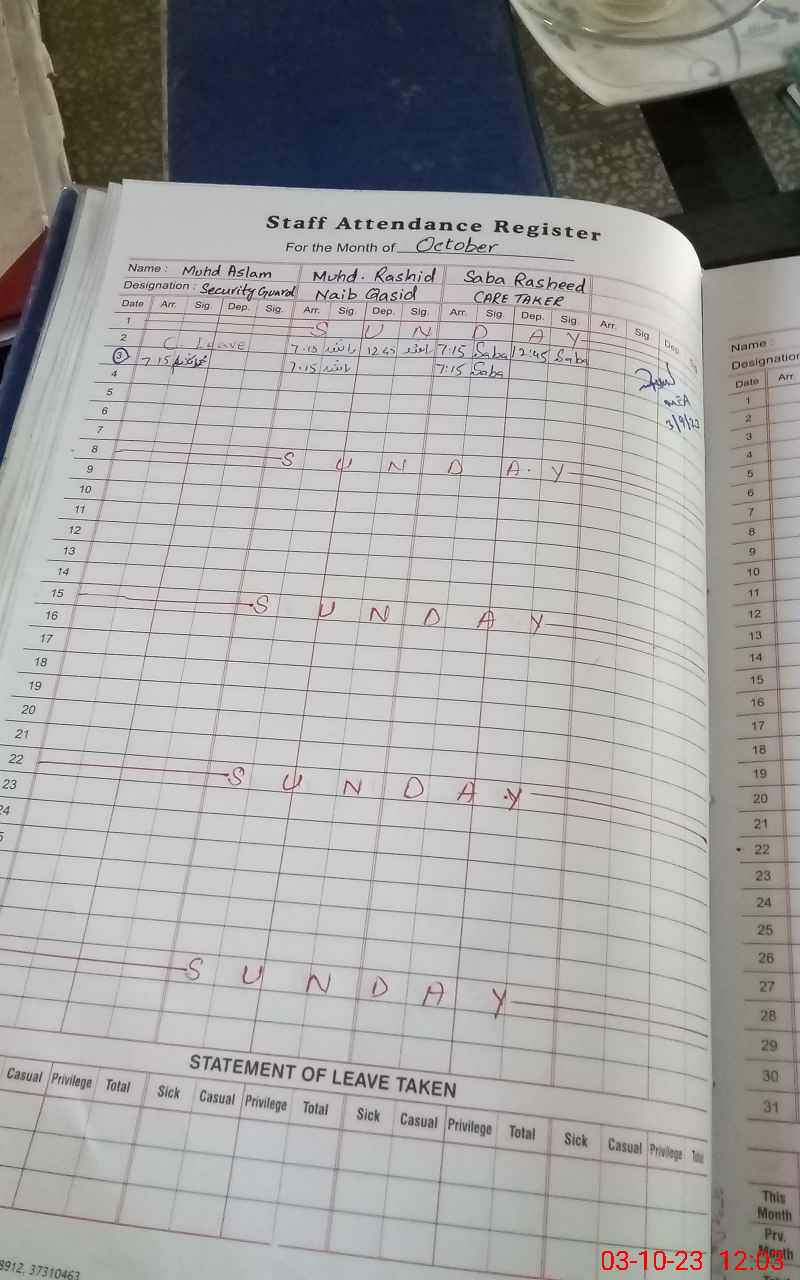 Staff Attendance Register
For the Month of October
Name : Muhd Aslam Muhd. Rashid Saba Rasheed
Designation : Security Guard Naib Qasid CARE TAKER
Date Arr. Sig. Dep. Sig. Arr. Sig. Dep. Sig. Arr. Sig. Dep. Sig. Arr. Sig. Dep.
1 S U N D A Y
2 C Leave 7.15 راشد 12 45 راشد 7:15 Saba 12:45 Saba
3 7 15 7.15 راشد 7:15 Saba
4
3/9/23
5
6
7
8 S U N D A Y
9
10
11
12
13
14
15 S U N D A Y
16
17
18
19
20
21
22 S U N D A Y
23
24
5
S U N D A Y
STATEMENT OF LEAVE TAKEN
Casual Privilege Total Sick Casual Privilege Total Sick Casual Privilege Total Sick Casual Privilege Total
8912, 37310463
Name :
Designation
Date Arr.
1
2
3
4
5
6
7
8
9
10
11
12
13
14
15
16
17
18
19
20
21
22
23
24
25
26
27
28
29
30
31
This
Month
Prv.
Month
03-10-23 12:03